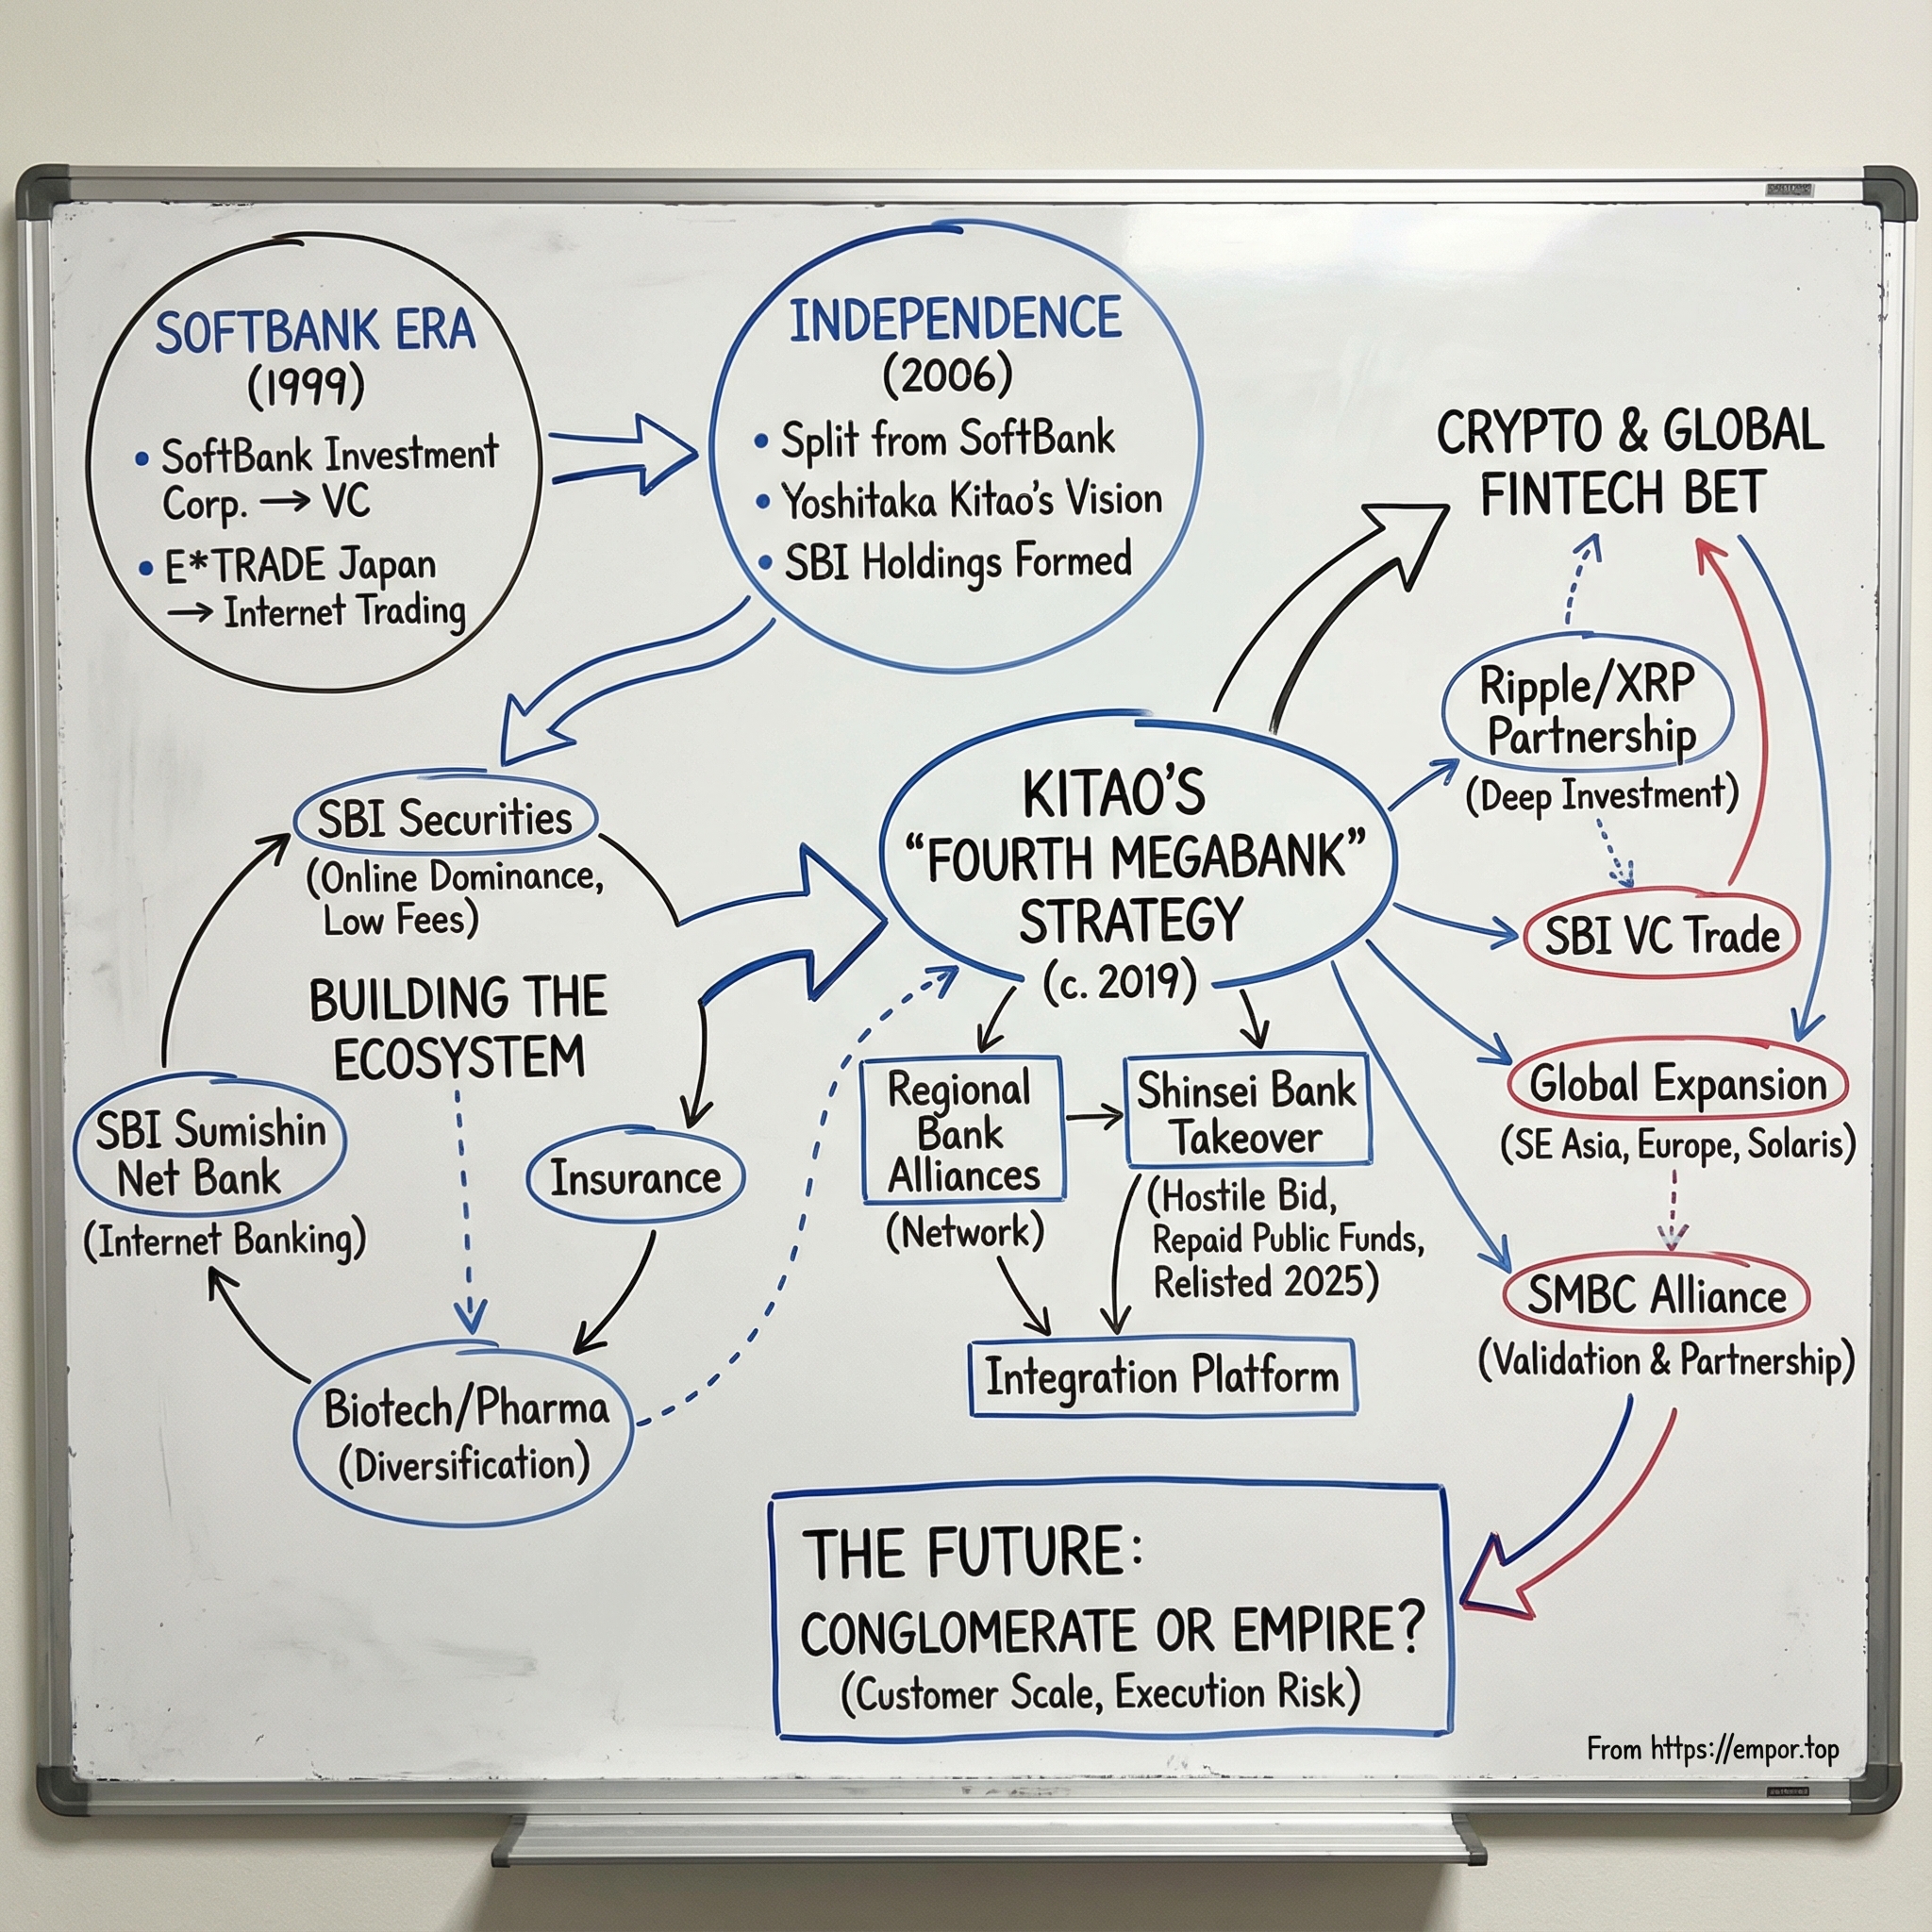 SOFTBANK ERA
(1999)
• SoftBank Investment
Corp. → VC
• E*TRADE Japan
→ Internet Trading
INDEPENDENCE
(2006)
• Split from SoftBank
• Yoshitaka Kitao's Vision
• SBI Holdings Formed
CRYPTO & GLOBAL
FINTECH BET
Ripple/XRP
Partnership
(Deep Investment)
SBI VC Trade
Global Expansion
(SE Asia, Europe, Solaris)
SMBC Alliance
(Validation & Partnership)
SBI Securities
(Online Dominance,
Low Fees)
BUILDING THE
ECOSYSTEM
SBI Sumishin
Net Bank
(Internet Banking)
Insurance
Biotech/Pharma
(Diversification)
KITAO'S
“FOURTH MEGABANK”
STRATEGY
(c. 2019)
Regional
Bank
Alliances
(Network)
Shinsei Bank
Takeover
(Hostile Bid,
Repaid Public Funds,
Relisted 2025)
Integration Platform
THE FUTURE:
CONGLOMERATE OR EMPIRE?
(Customer Scale, Execution Risk)
From https://empor.top